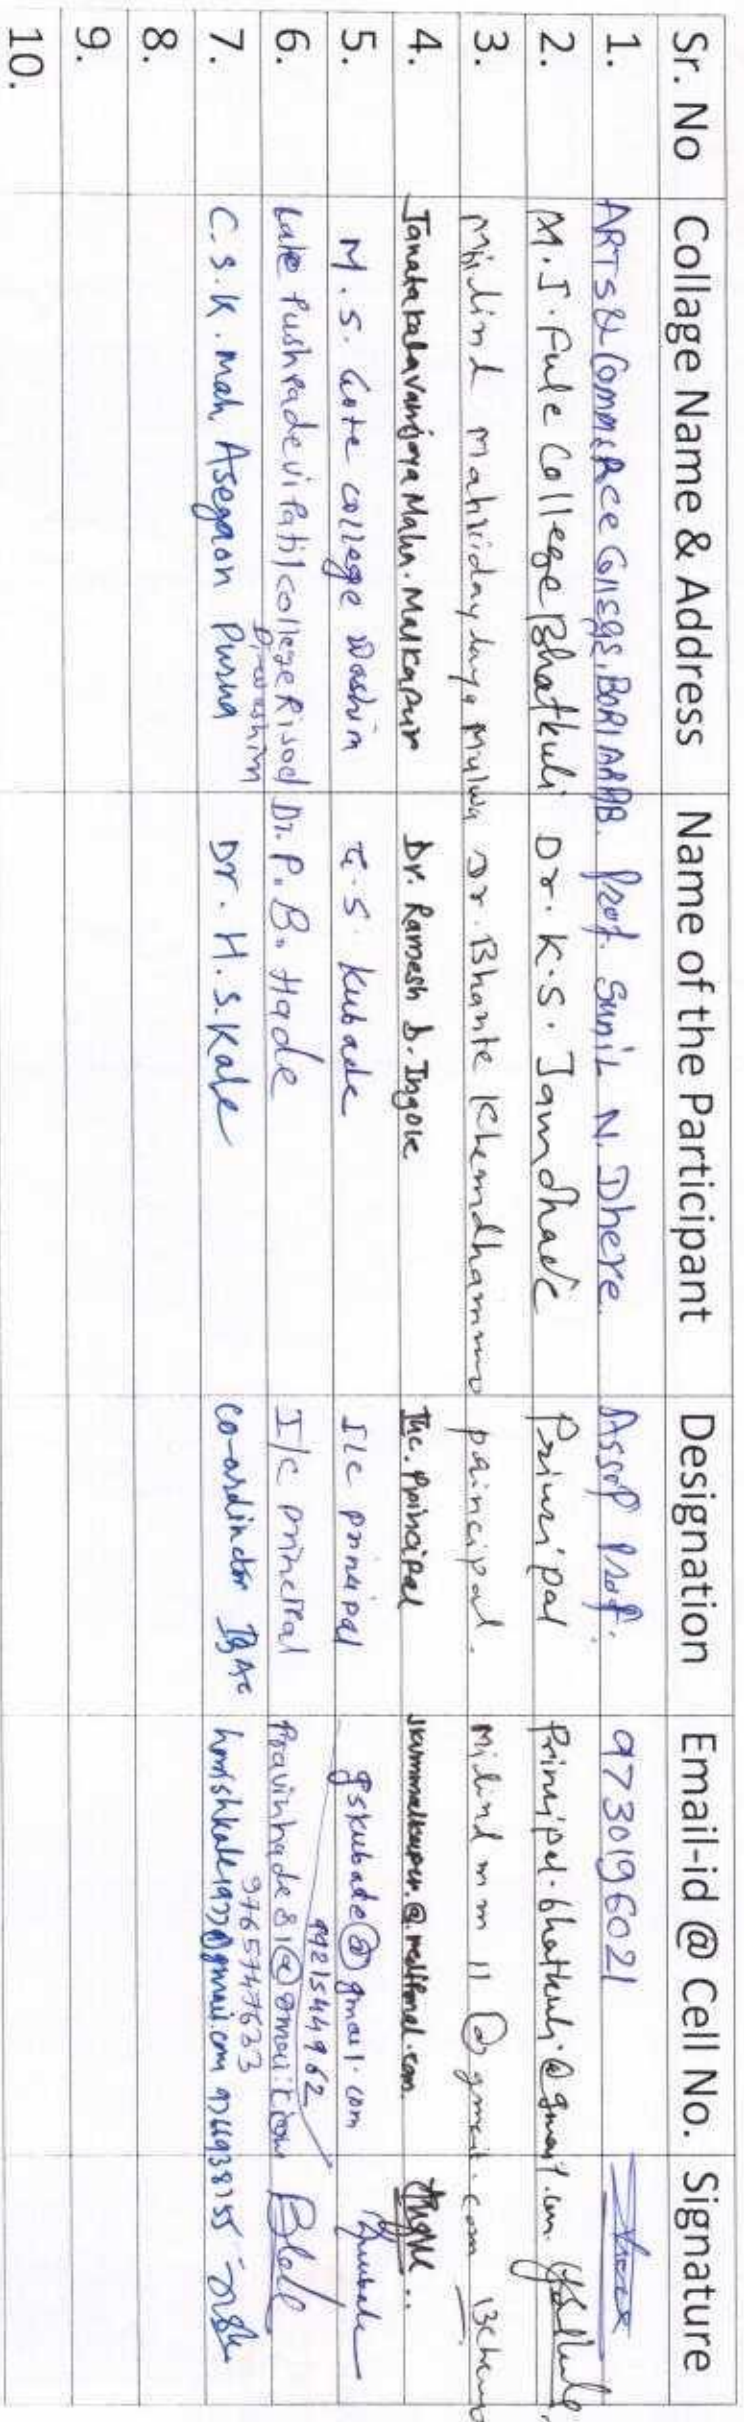 Sr. No Collage Name & Address Name of the Participant Designation Email-id @ Cell No. Signature
1. ARTS & Commerce College, BORI ARAB. Prof. Sunil N. Dhere. Assop Prof. 9730196021
2. M.J. Fule College Bhatkuli Dr. K.S. Jamdhade Principal Principal.bhatkuli@gmail.com
3. Milind Mahividaylaya Mulwa Dr. Bhante Khemdhammo paincipal. Milind mm 11 @gmail.com
4. Janata kalavanijya Maha. Malkapur Dr. Ramesh D. Ingole Inc. Principal
5. M.S. Gote college Washim G.S. Kubade I/c principal gskubade@gmail.com
9921544962
6. Late Pushpadevi Patil College Risod Dr. P.B. Hade I/c principal Pravinhade81@gmail.com
Di-washim 9765747633
7. C.S.K. Mah Asegaon Purna Dr. H.S. Kale co-ordinator IQAC harishkale1977@gmail.com 9766938755
8.
9.
10.